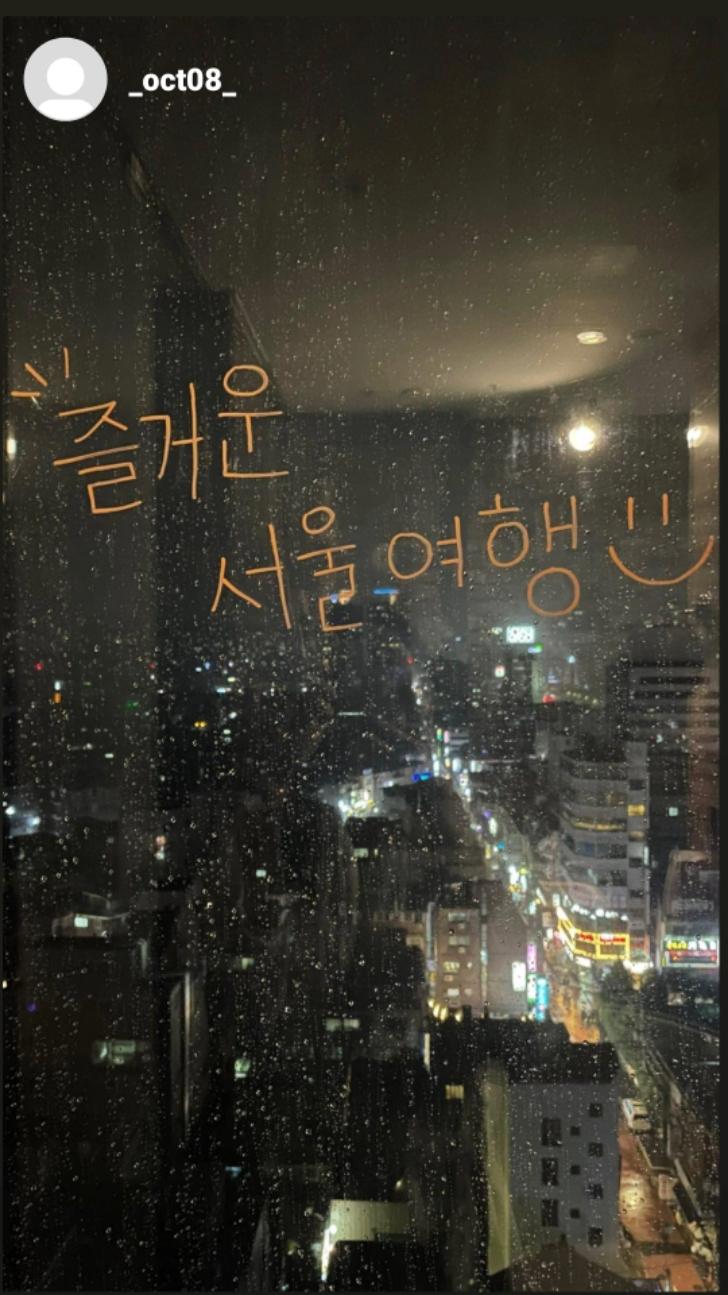 _oct08_
즐거운
서울 여행